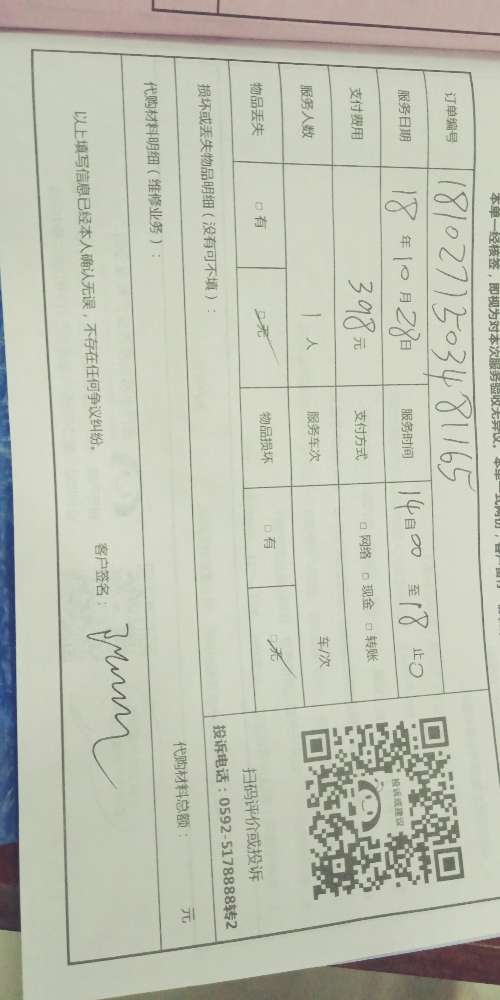 本单一经核签，即视为对本次服务验收无异议，本单一式两份，客户留存
订单编号 1810271503481165
服务日期 18 年 10 月 28 日 服务时间 14 自 00 至 18 止 0
支付费用 398 元 支付方式 □ 网络 □ 现金 □ 转账
服务人数 1 人 服务车次 车/次
物品丢失 □ 有 □ 无 物品损坏 □ 有 □ 无
投诉或建议
扫码评价或投诉
投诉电话：0592-5178888转2
损坏或丢失物品明细（没有可不填）：
代购材料明细（维修业务）： 代购材料总额： 元
以上填写信息已经本人确认无误，不存在任何争议纠纷。 客户签名：